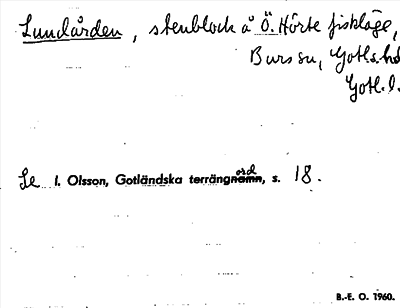 Lundården, stenblock å Ö. Hörte fiskläge,
Burs sn, Gotl. s. hd
Gotl. l.
Se I. Olsson, Gotländska terrängord, s. 18.
B.-E. O. 1960.